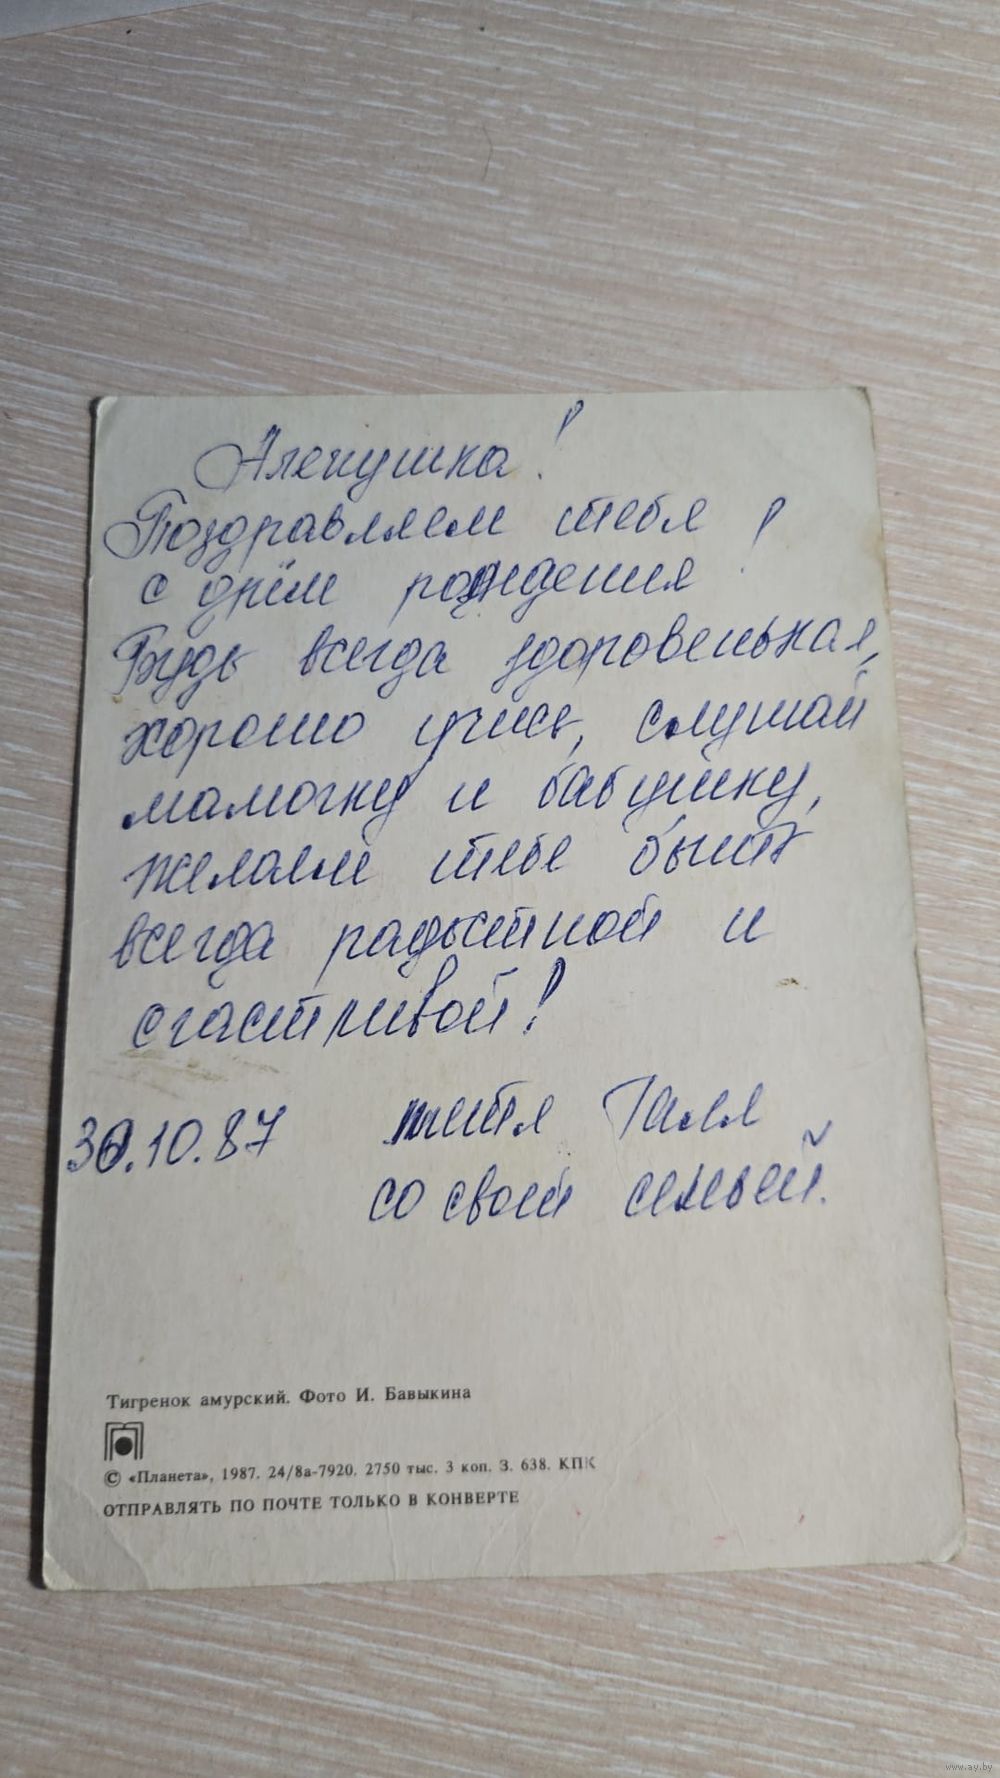 Аленушка!
Поздравляем тебя
с днём рождения!
Будь всегда здоровенькая,
хорошо учись, слушай
мамочку и бабушку,
желаем тебе быть
всегда радостной и
счастливой!
30.10.87 тётя Галя
со своей семьей.
Тигренок амурский. Фото И. Бавыкина
© «Планета», 1987. 24/8а-7920. 2750 тыс. 3 коп. З. 638. КПК
ОТПРАВЛЯТЬ ПО ПОЧТЕ ТОЛЬКО В КОНВЕРТЕ
www.ay.by